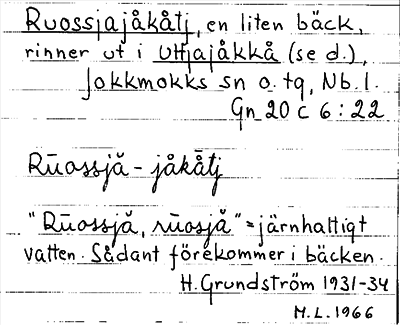 Ruossjajåkåtj, en liten bäck,
rinner ut i Uttjajåkkå (se d.),
Jokkmokks sn o. tg, Nb. l.
Gn 20 c 6:22
Rūossjă - jåkåtj
"Rūossjă, rūosjă" = järnhaltigt
vatten. Sådant förekommer i bäcken.
H. Grundström 1931-34
M.L. 1966